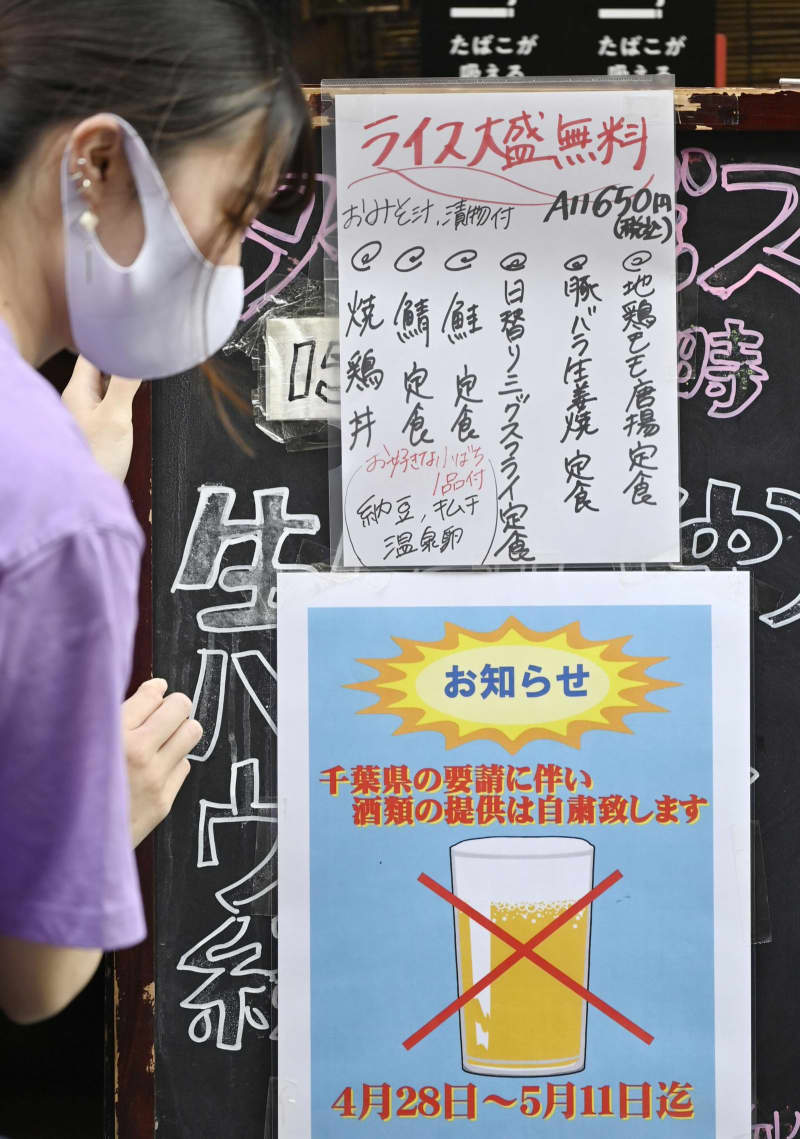 たばこが
吸える
たばこが
吸える
ライス大盛無料
おみそ汁、漬物付
All 650円
(税込)
@地鶏モモ唐揚定食
@豚バラ生姜焼定食
@日替りミックスフライ定食
@鮭定食
@鯖定食
@焼鶏丼
お好きな小ばち
1品付
納豆、キムチ
温泉卵
時
生
ハ
ウ
お知らせ
千葉県の要請に伴い
酒類の提供は自粛致します
4月28日～5月11日迄